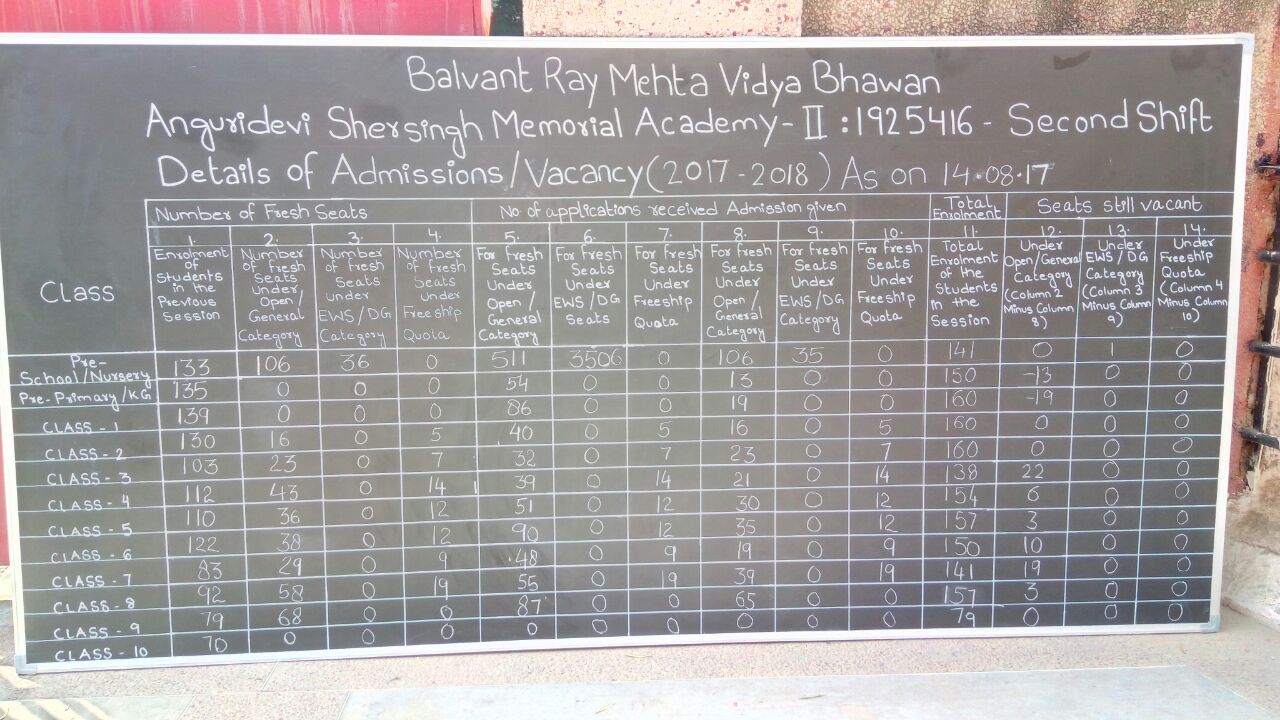 Balvant Ray Mehta Vidya Bhawan
Anguridevi Shersingh Memorial Academy-II :1925416 - Second Shift
Details of Admissions/Vacancy(2017-2018) As on 14.08.17
Class
Number of Fresh Seats
No. of applications received Admission given
Total
Enrolment
Seats still vacant
1.
Enrolment
of
students
in the
Previous
Session
2.
Number
of fresh
Seats
Under/
Open/
General
Category
3.
Number
of fresh
Seats
under
EWS/DG
Category
4.
Number
of fresh
Seats
Under
Freeship
Quota
5.
For fresh
Seats
Under
Open/
General
Category
6.
For fresh
Seats
Under
EWS/DG
Seats
7.
For fresh
Seats
Under
Freeship
Quota
8.
For fresh
Seats
Under
Open/
General
Category
9.
For fresh
Seats
Under
EWS/DG
Category
10.
For fresh
Seats
Under
Freeship
Quota
11.
Total
Enrolment
of the
Students
In the
Session
12.
Under
Open/General
Category
(Column 2
Minus Column
8)
13.
Under
EWS/DG
Category
(Column 3
Minus Column
9)
14.
Under
Freeship
Quota
(Column 4
Minus Column
10)
Pre-
School/Nursery 133 106 36 0 511 3506 0 106 35 0 141 0 1 0
Pre-Primary/KG 135 0 0 0 54 0 0 13 0 0 150 -13 0 0
CLASS - 1 139 0 0 0 86 0 0 19 0 0 160 -19 0 0
CLASS - 2 130 16 0 5 40 0 5 16 0 5 160 0 0 0
CLASS - 3 103 23 0 7 32 0 7 23 0 7 160 0 0 0
CLASS - 4 112 43 0 14 39 0 14 21 0 14 138 22 0 0
CLASS - 5 110 36 0 12 51 0 12 30 0 12 154 6 0 0
CLASS - 6 122 38 0 12 90 0 12 35 0 12 157 3 0 0
CLASS - 7 83 29 0 9 48 0 9 19 0 9 150 10 0 0
CLASS - 8 92 58 0 19 55 0 19 39 0 19 141 19 0 0
CLASS - 9 79 68 0 0 87 0 0 65 0 0 157 3 0 0
CLASS - 10 70 0 0 0 0 0 0 0 0 0 79 0 0 0